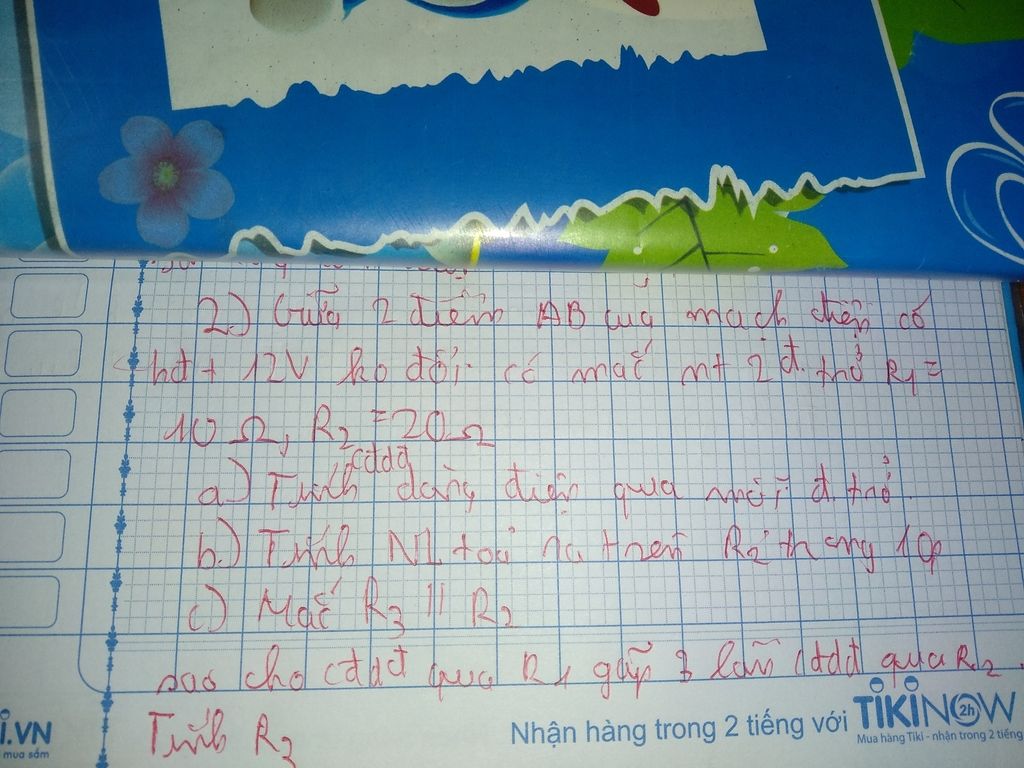 2.) Giữa 2 điểm AB của mạch điện có
hđt 12V ko đổi có mắc nt 2 đ. trở R1 =
10 Ω, R2 = 20Ω
cđdđ
a.) Tính dòng điện qua mỗi đ. trở.
b.) Tính NL toả ra trên R2 trong 10p
c) Mắc R3 || R2
sao cho cđdđ qua R1 gấp 3 lần cđdđ qua R2.
Tính R3
I.VN
mua sắm
Nhận hàng trong 2 tiếng với TIKINOW 2h
Mua hàng Tiki - nhận trong 2 tiếng